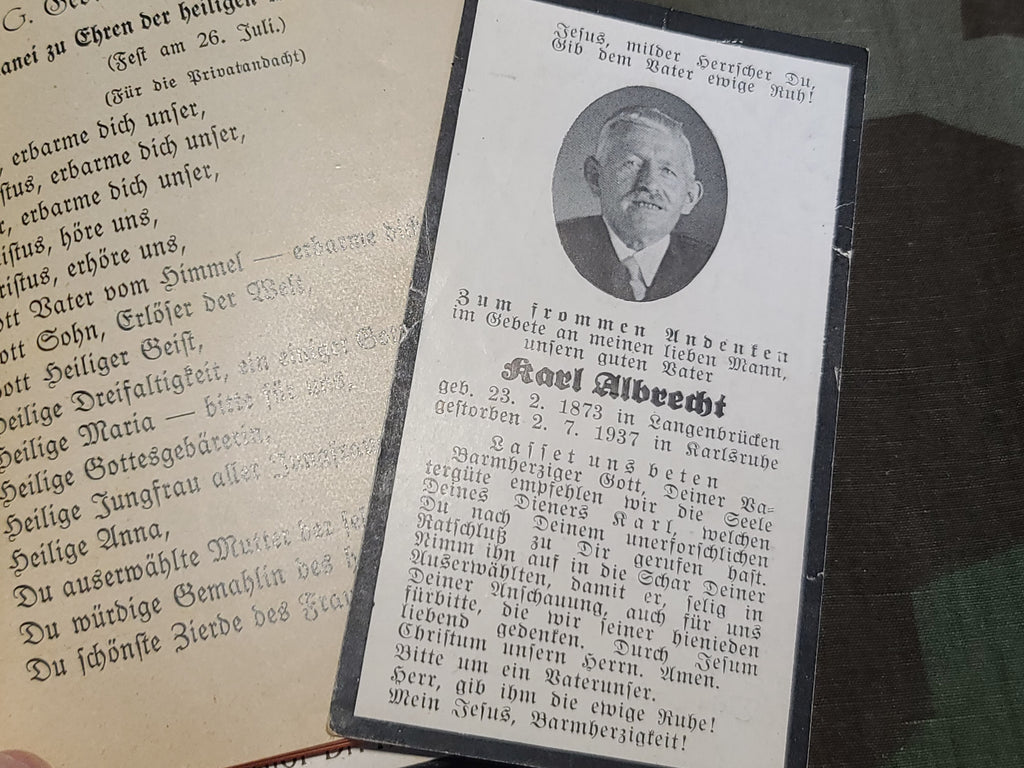 anei zu Ehren der heiligen
(Fest am 26. Juli.)
(Für die Privatandacht)
erbarme dich unser,
stus, erbarme dich unser,
r, erbarme dich unser,
istus, höre uns,
ristus, erhöre uns,
ott Vater vom Himmel — erbarme dich
ott Sohn, Erlöser der Welt,
ott Heiliger Geist,
Heilige Dreifaltigkeit, ein einiger Gott
Heilige Maria — bitte für uns,
Heilige Gottesgebärerin,
Heilige Jungfrau aller Jungfrauen
Heilige Anna,
Du auserwählte Mutter der
Du würdige Gemahlin des h
Du schönste Zierde des
Jesus, milder Herrscher Du,
Gib dem Vater ewige Ruh!
Zum frommen Andenken
im Gebete an meinen lieben Mann,
unsern guten Vater
Karl Albrecht
geb. 23. 2. 1873 in Langenbrücken
gestorben 2. 7. 1937 in Karlsruhe
Lasset uns beten
Barmherziger Gott, Deiner Va-
tergüte empfehlen wir die Seele
Deines Dieners Karl, welchen
Du nach Deinem unerforschlichen
Ratschluß zu Dir gerufen hast.
Nimm ihn auf in die Schar Deiner
Auserwählten, damit er, selig in
Deiner Anschauung, auch für uns
fürbitte, die wir seiner hienieden
liebend gedenken. Durch Jesum
Christum unsern Herrn. Amen.
Bitte um ein Vaterunser.
Herr, gib ihm die ewige Ruhe!
Mein Jesus, Barmherzigkeit!